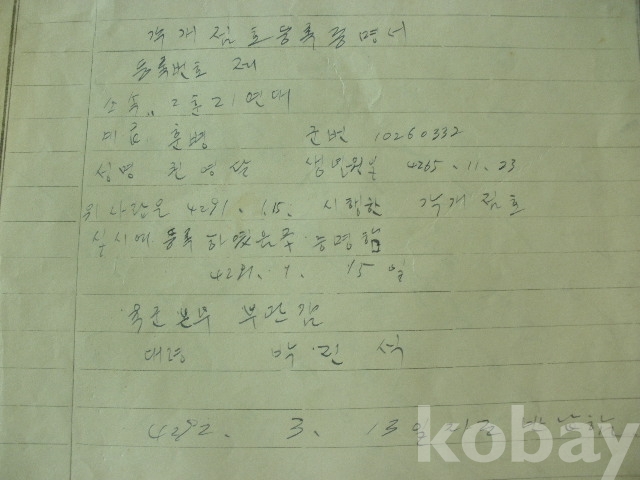 각개점호등록증명서
등록번호 제
소속 2훈21연대
훈병 군번 10260332
성명 권영 생년월일 4265.11.23
위 사람은 4291.1.15. 시행한 각개점호
실시에 등록하였음을 증명함
4291.1. 15일
육군본부 부관감
대령 박 민 석
4292. 3. 13일
kobay